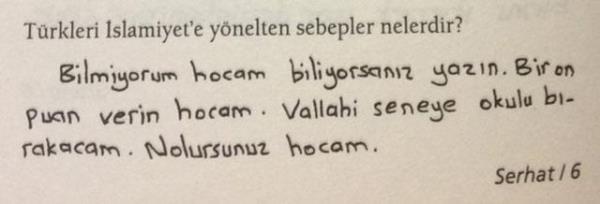 Türkleri İslamiyet'e yönelten sebepler nelerdir?
Bilmiyorum hocam biliyorsanız yazın. Bir on
puan verin hocam. Vallahi seneye okulu bı-
rakacam. Nolursunuz hocam.
Serhat / 6